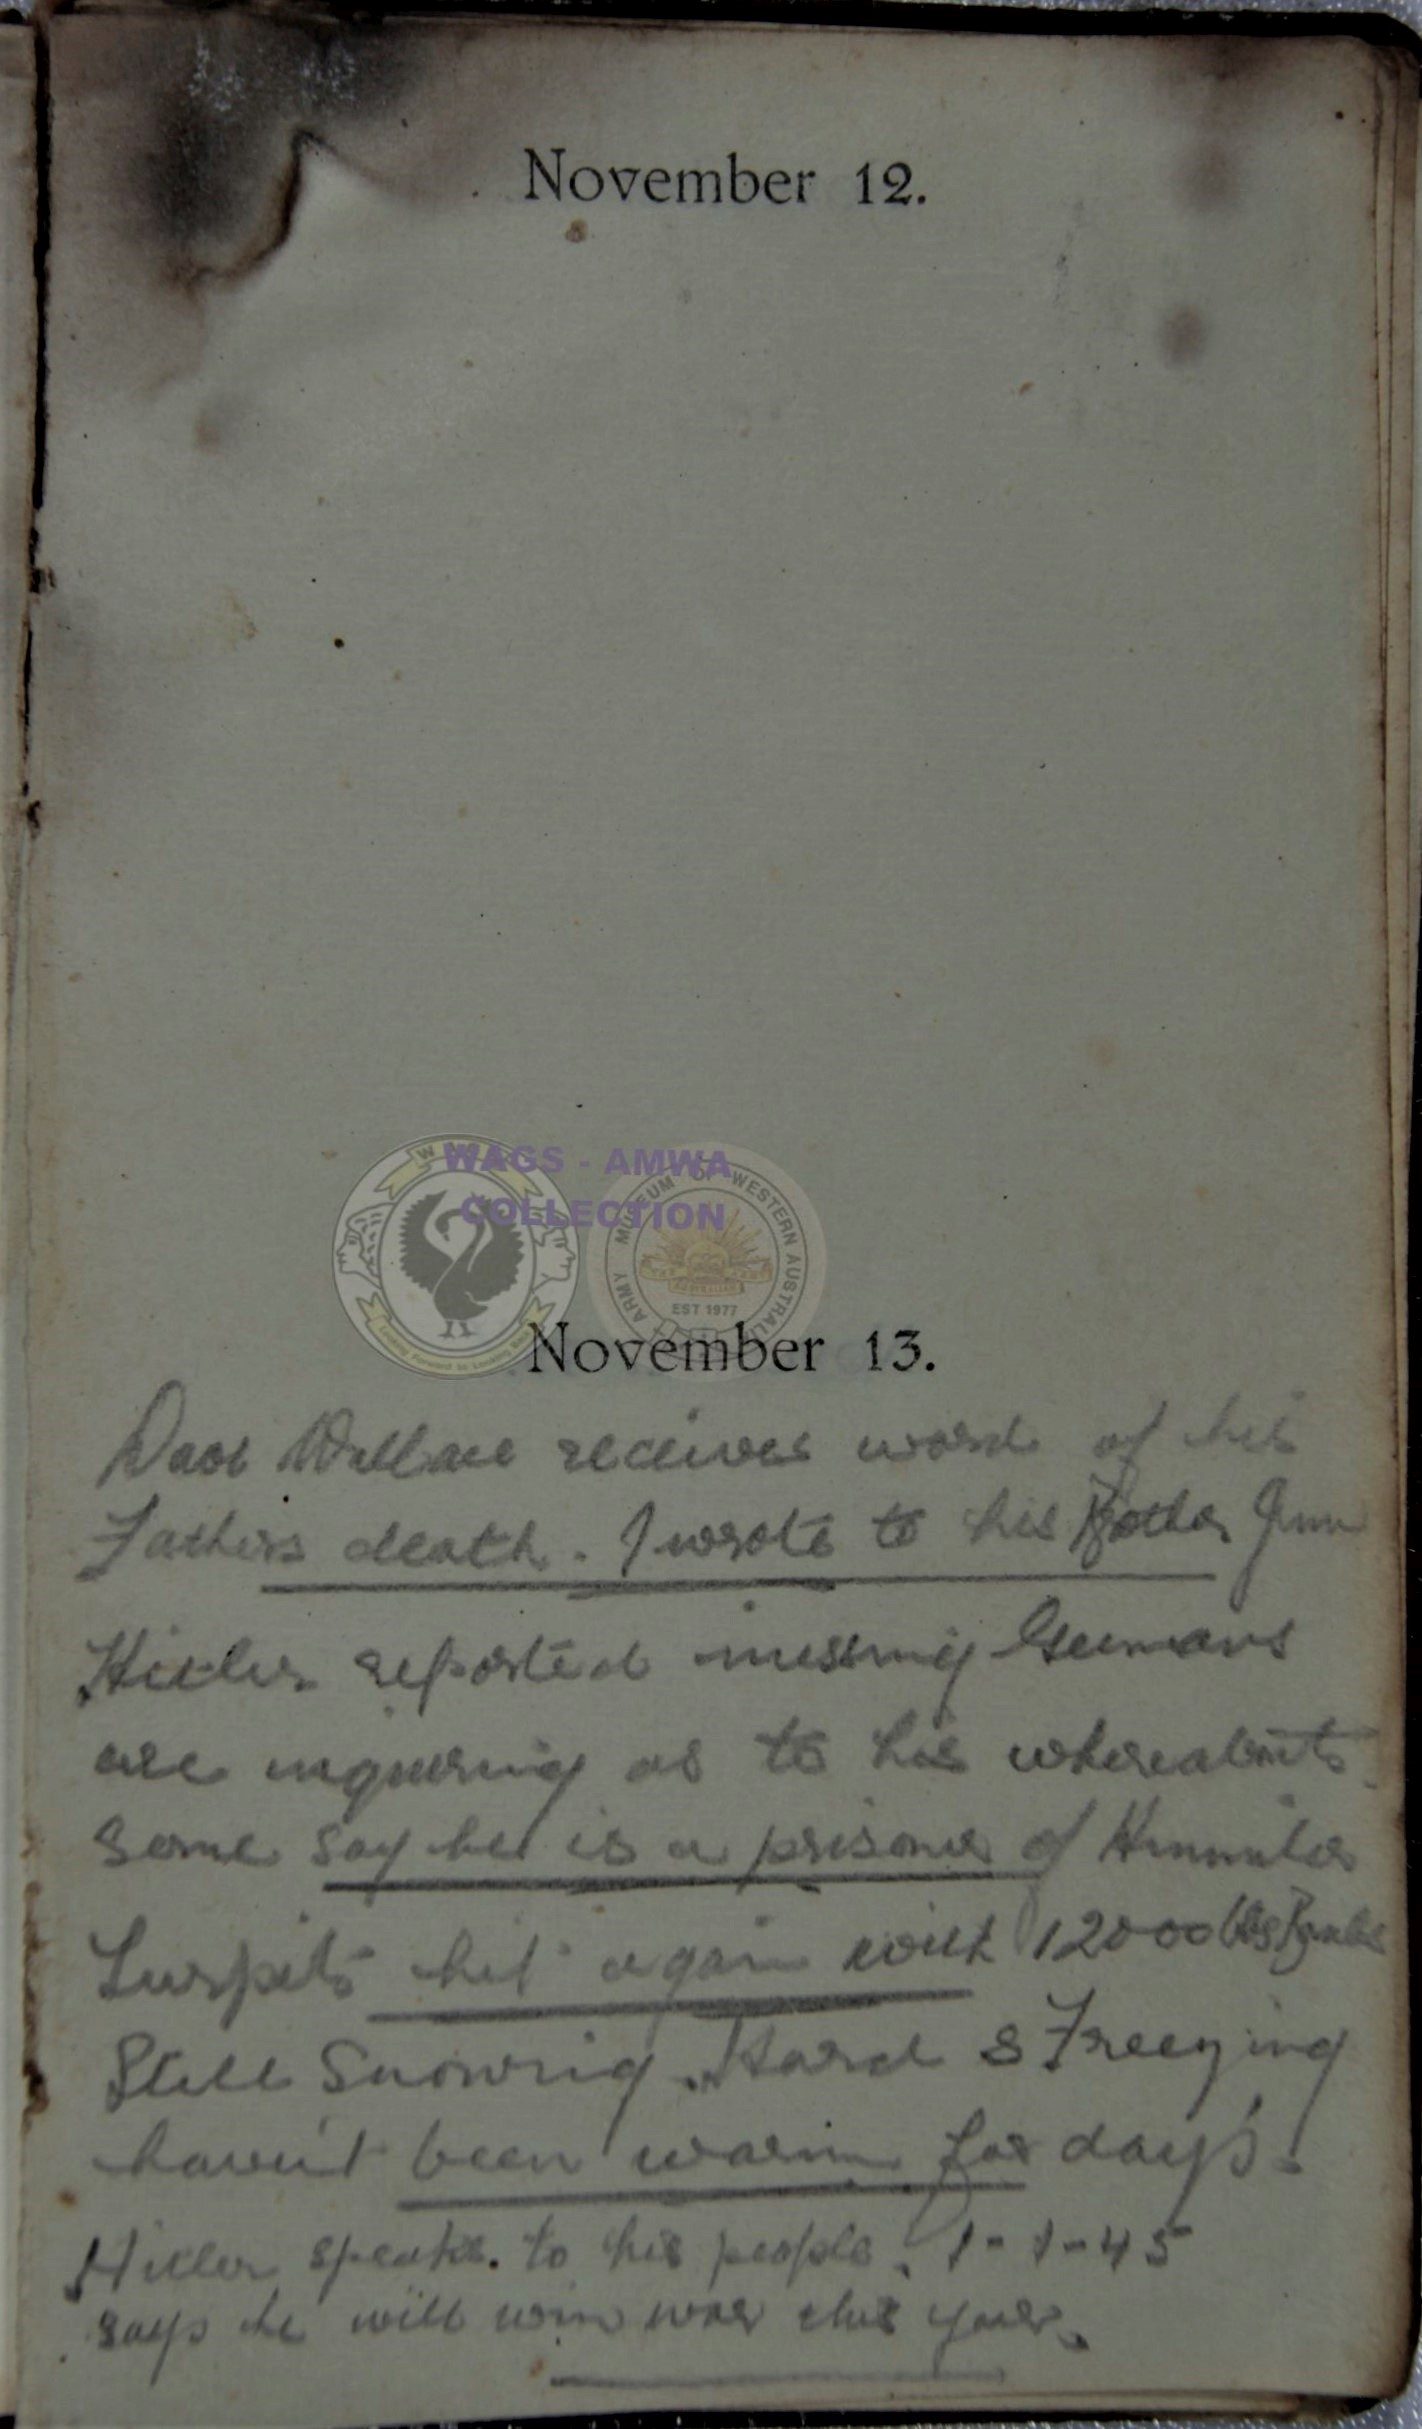 November 12.
WAGS - AMWA
COLLECTION
ARMY MUSEUM OF WESTERN AUSTRALIA
EST 1977
November 13.
Dave Wallace receives word of his
Fathers death. I wrote to his Brother Jim
Hitler reported missing Germans
are inquiring as to his whereabouts
some say he is a prisoner of Himmler
Turpits hit again with 12000 lbs Bombs
Still Snowing. Hard & Freezing
haven't been warm for days.
Hitler speaks. to his people. 1-1-45
says he will win war this year.